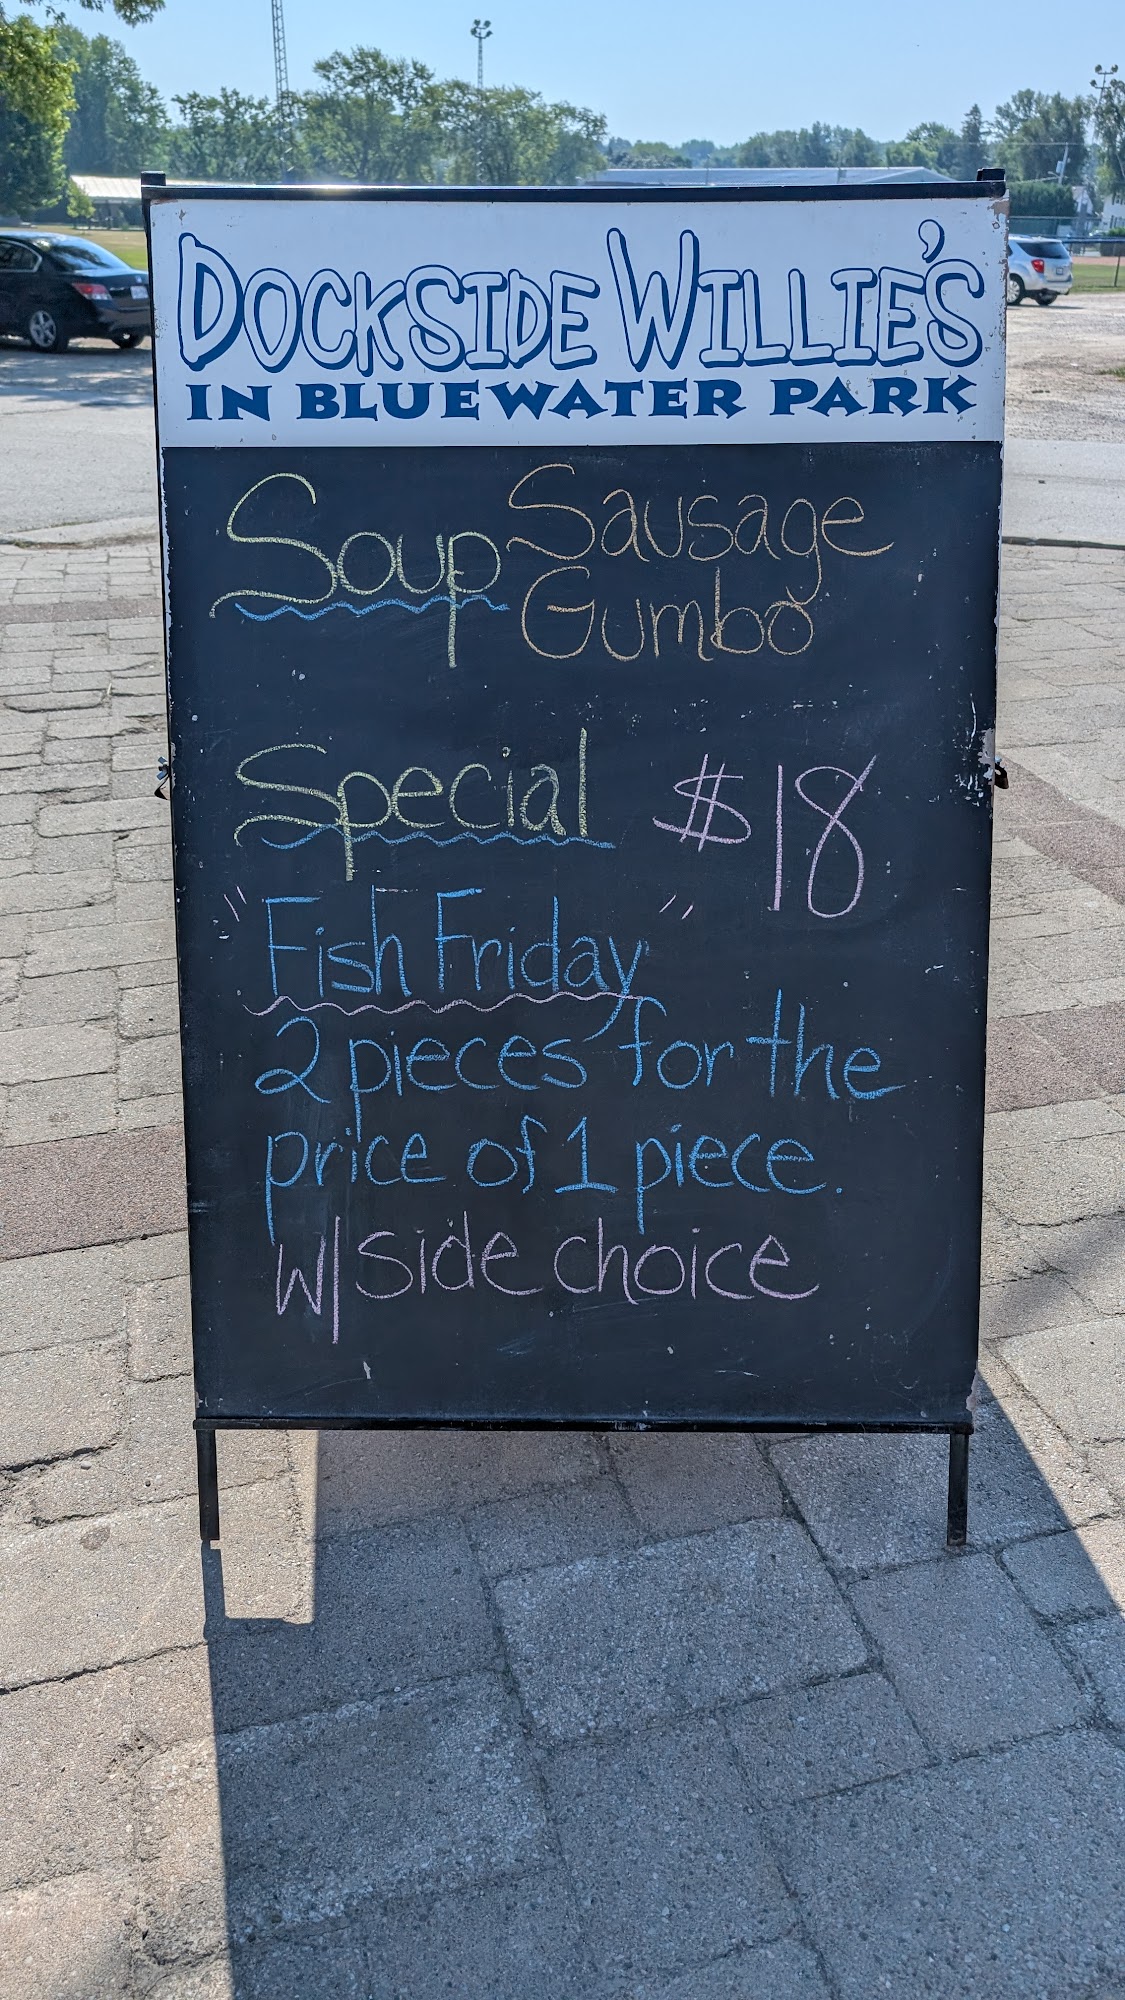 DOCKSIDE WILLIE'S
IN BLUEWATER PARK
Soup Sausage
Gumbo
Special $18
"Fish Friday"
2 pieces for the
price of 1 piece.
w/ side choice